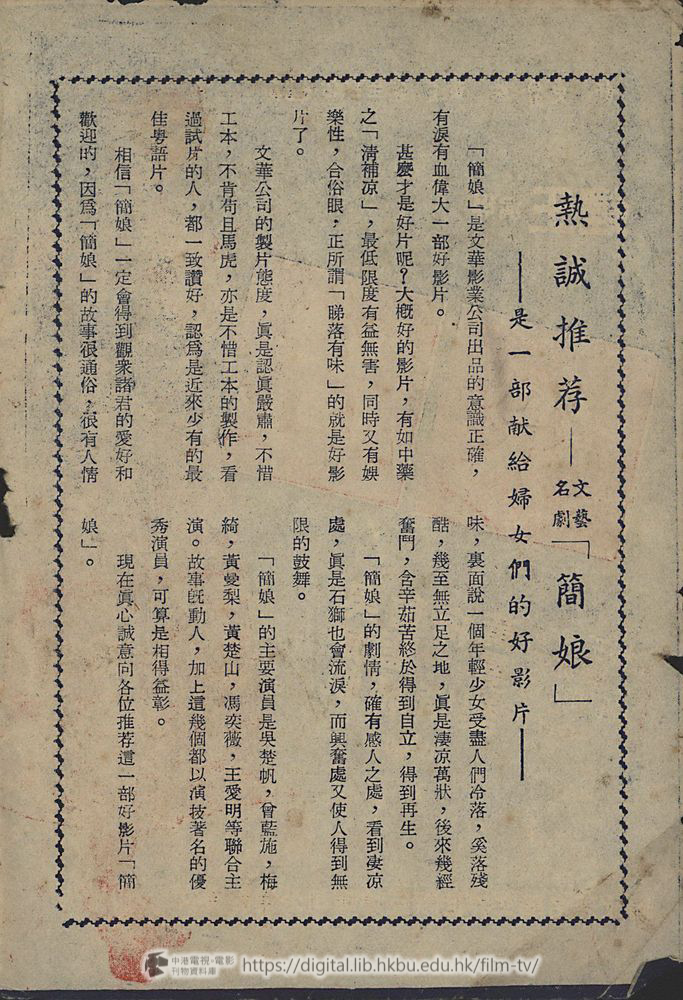 熱誠推荐——文藝名劇「簡娘」
——是一部献給婦女們的好影片——
「簡娘」是文華影業公司出品的意識正確，
有淚有血偉大一部好影片。
甚麼才是好片呢？大概好的影片，有如中藥
之「清補凉」，最低限度有益無害，同時又有娛
樂性，合俗眼，正所謂「睇落有味」的就是好影
片了。
文華公司的製片態度，眞是認眞嚴肅，不惜
工本，不肯苟且馬虎，亦是不惜工本的製作，看
過試片的人，都一致讚好，認爲是近來少有的最
佳粤語片。
相信「簡娘」一定會得到觀衆諸君的愛好和
歡迎的，因爲「簡娘」的故事很通俗，很有人情
味，裏面說一個年輕少女受盡人們冷落，奚落殘
酷，幾至無立足之地，眞是淒凉萬狀，後來幾經
奮鬥，含辛茹苦終於得到自立，得到再生。
「簡娘」的劇情，確有感人之處，看到凄凉
處，眞是石獅也會流淚，而興奮處又使人得到無
限的鼓舞。
「簡娘」的主要演員是吳楚帆，曾藍施，梅
綺，黃曼梨，黃楚山，馮奕薇，王愛明等聯合主
演。故事旣動人，加上這幾個都以演技著名的優
秀演員，可算是相得益彰。
現在眞心誠意向各位推荐這一部好影片「簡
娘」。
中港電視·電影
刊物資料庫
https://digital.lib.hkbu.edu.hk/film-tv/